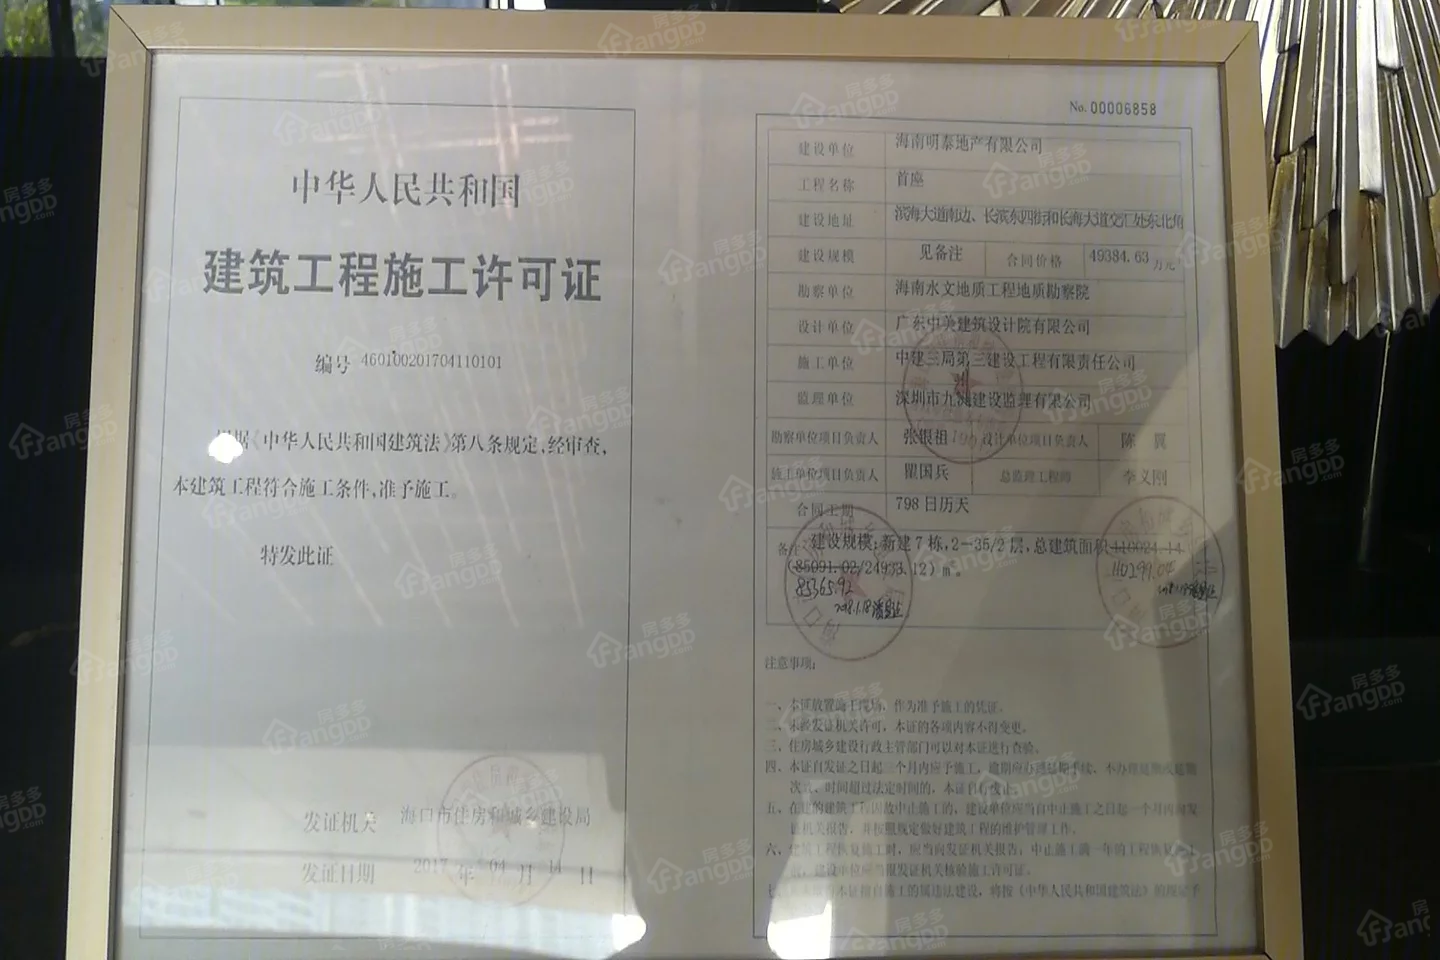 中华人民共和国
建筑工程施工许可证
编号 460100201704110101
根据《中华人民共和国建筑法》第八条规定,经审查,
本建筑工程符合施工条件,准予施工。
特发此证
发证机关 海口市住房和城乡建设局
发证日期 2017 年 04 月 11 日
No.00006858
建设单位 海南明泰地产有限公司
工程名称 首座
建设地址 滨海大道南边、长滨东四街和长海大道交汇处东北角
建设规模 见备注 合同价格 49384.63 万元
勘察单位 海南水文地质工程地质勘察院
设计单位 广东中美建筑设计院有限公司
施工单位 中建三局第三建设工程有限责任公司
监理单位 深圳市九洲建设监理有限公司
勘察单位项目负责人 张银祖 设计单位项目负责人 陈 翼
施工单位项目负责人 瞿国兵 总监理工程师 李义刚
合同工期 798日历天
备注:建设规模:新建7栋,2-35/2层,总建筑面积110024.14
(85091.02/24933.12)m²。 110299.04
85365.92
2018.1.18
注意事项:
一、本证放置施工现场,作为准予施工的凭证。
二、未经发证机关许可,本证的各项内容不得变更。
三、住房城乡建设行政主管部门可以对本证进行查验。
四、本证自发证之日起三个月内应予施工,逾期应办理延期手续,不办理延期或延期
次数、时间超过法定时间的,本证自行废止。
五、在建的建筑工程因故中止施工的,建设单位应当自中止施工之日起一个月内向发
证机关报告,并按照规定做好建筑工程的维护管理工作。
六、建筑工程恢复施工时,应当向发证机关报告;中止施工满一年的工程恢复
前,建设单位应当报发证机关核验施工许可证。
本证擅自施工的属违法建设,将按《中华人民共和国建筑法》的规定予
房多多
Fangdd
.com